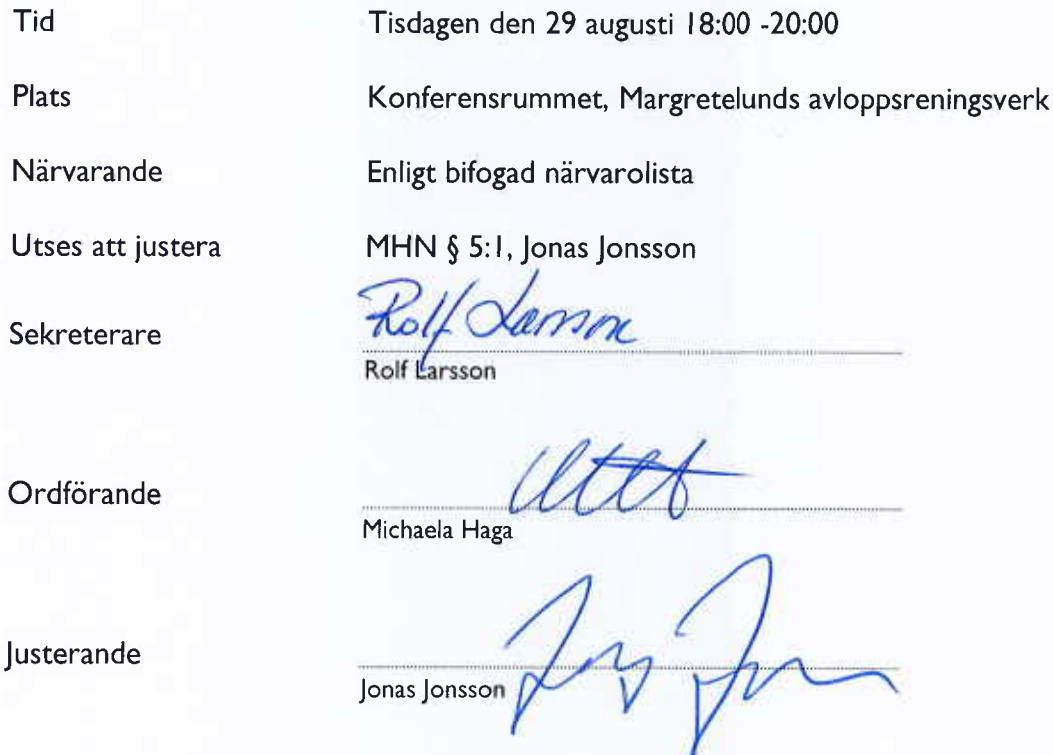 Tid Tisdagen den 29 augusti 18:00 -20:00
Plats Konferensrummet, Margretelunds avloppsreningsverk
Närvarande Enligt bifogad närvarolista
Utses att justera MHN § 5:1, Jonas Jonsson
Rolf Larsson
Sekreterare
Rolf Larsson
Ordförande
Michaela Haga
Justerande
Jonas Jonsson